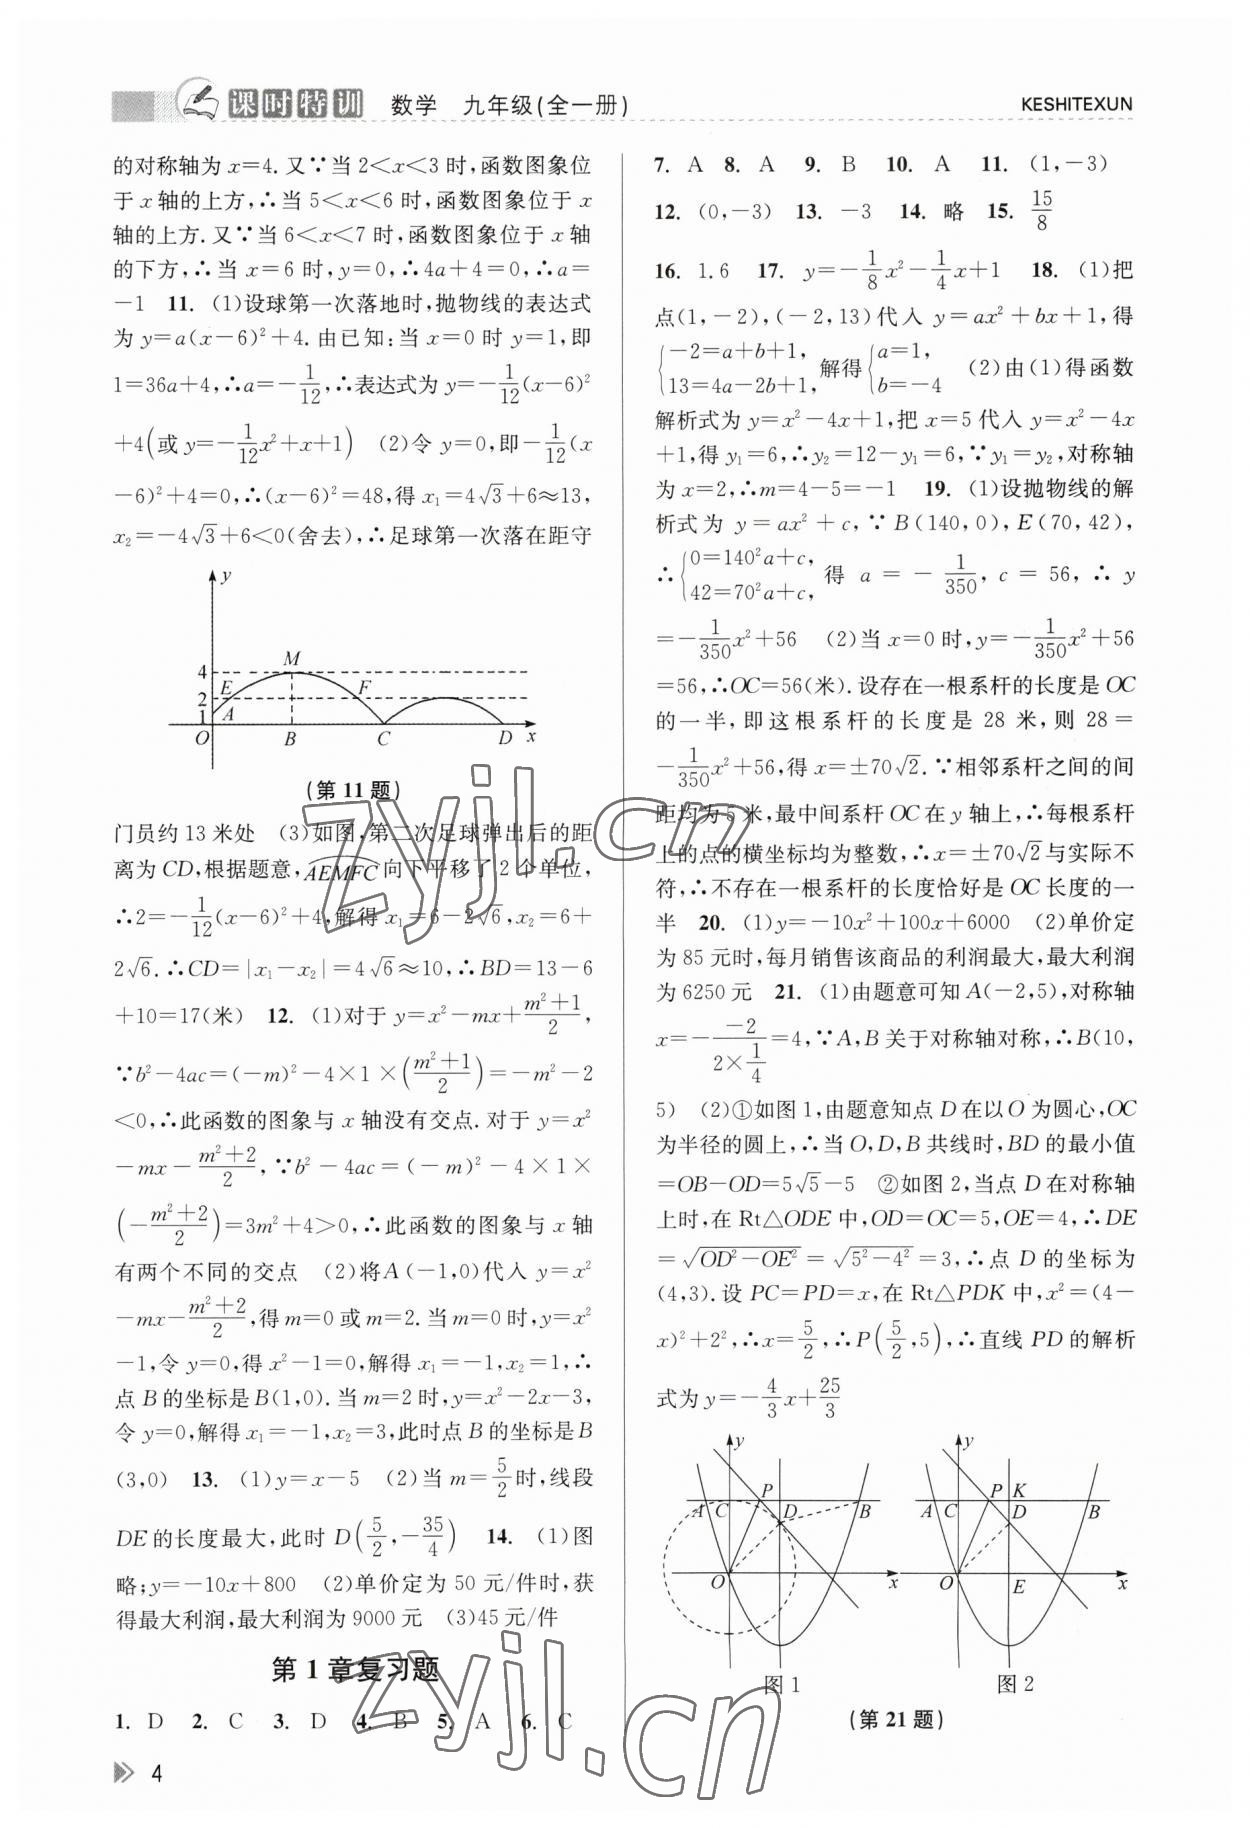 课时特训 数学 九年级(全一册) KESHITEXUN
的对称轴为 x=4. 又∵当 2<x<3 时,函数图象位
于 x 轴的上方,∴当 5<x<6 时,函数图象位于 x
轴的上方. 又∵当 6<x<7 时,函数图象位于 x 轴
的下方,∴当 x=6 时,y=0,∴4a+4=0,∴a=
-1 11. (1)设球第一次落地时,抛物线的表达式
为 y=a(x-6)²+4. 由已知:当 x=0 时 y=1,即
1=36a+4,∴a=-1/12,∴表达式为 y=-1/12(x-6)²
+4(或 y=-1/12x²+x+1) (2)令 y=0,即-1/12(x
-6)²+4=0,∴(x-6)²=48,得 x₁=4√3+6≈13,
x₂=-4√3+6<0(舍去),∴足球第一次落在距守
y
4 M
2 E F
1 A
O B C D x
(第 11 题)
门员约 13 米处 (3)如图,第二次足球弹出后的距
离为 CD,根据题意,AEMFC 向下平移了 2 个单位,
∴2=-1/12(x-6)²+4,解得 x₁=6-2√6,x₂=6+
2√6. ∴CD=|x₁-x₂|=4√6≈10,∴BD=13-6
+10=17(米) 12. (1)对于 y=x²-mx+(m²+1)/2,
∵b²-4ac=(-m)²-4×1×((m²+1)/2)=-m²-2
<0,∴此函数的图象与 x 轴没有交点. 对于 y=x²
-mx-(m²+2)/2,∵b²-4ac=(-m)²-4×1×
(-(m²+2)/2)=3m²+4>0,∴此函数的图象与 x 轴
有两个不同的交点 (2)将A(-1,0)代入 y=x²
-mx-(m²+2)/2,得 m=0 或 m=2. 当 m=0 时,y=x²
-1,令 y=0,得 x²-1=0,解得 x₁=-1,x₂=1,∴
点 B 的坐标是 B(1,0). 当 m=2 时,y=x²-2x-3,
令 y=0,解得 x₁=-1,x₂=3,此时点 B 的坐标是 B
(3,0) 13. (1)y=x-5 (2)当 m=5/2 时,线段
DE 的长度最大,此时 D(5/2,-35/4) 14. (1)图
略;y=-10x+800 (2)单价定为 50 元/件时,获
得最大利润,最大利润为 9000 元 (3)45 元/件
第 1 章复习题
1. D 2. C 3. D 4. B 5. A 6. C
7. A 8. A 9. B 10. A 11. (1,-3)
12. (0,-3) 13. -3 14. 略 15. 15/8
16. 1.6 17. y=-1/8x²-1/4x+1 18. (1)把
点(1,-2),(-2,13)代入 y=ax²+bx+1,得
{-2=a+b+1, 13=4a-2b+1, 解得{a=1, b=-4 (2)由(1)得函数
解析式为 y=x²-4x+1,把 x=5 代入 y=x²-4x
+1,得 y₁=6,∴y₂=12-y₁=6,∵y₁=y₂,对称轴
为 x=2,∴m=4-5=-1 19. (1)设抛物线的解
析式为 y=ax²+c,∵B(140,0),E(70,42),
∴{0=140²a+c, 42=70²a+c, 得 a=-1/350,c=56,∴y
=-1/350x²+56 (2)当 x=0 时,y=-1/350x²+56
=56,∴OC=56(米). 设存在一根系杆的长度是 OC
的一半,即这根系杆的长度是 28 米,则 28=
-1/350x²+56,得 x=±70√2. ∵相邻系杆之间的间
距均为 5 米,最中间系杆 OC 在 y 轴上,∴每根系杆
上的点的横坐标均为整数,∴x=±70√2与实际不
符,∴不存在一根系杆的长度恰好是 OC 长度的一
半 20. (1)y=-10x²+100x+6000 (2)单价定
为 85 元时,每月销售该商品的利润最大,最大利润
为 6250 元 21. (1)由题意可知 A(-2,5),对称轴
x=-(-2)/(2×1/4)=4,∵A,B 关于对称轴对称,∴B(10,
5) (2)①如图 1,由题意知点 D 在以 O 为圆心,OC
为半径的圆上,∴当 O,D,B 共线时,BD 的最小值
=OB-OD=5√5-5 ②如图 2,当点 D 在对称轴
上时,在 Rt△ODE 中,OD=OC=5,OE=4,∴DE
=√(OD²-OE²)=√(5²-4²)=3,∴点 D 的坐标为
(4,3). 设 PC=PD=x,在 Rt△PDK 中,x²=(4-
x)²+2²,∴x=5/2,∴P(5/2,5),∴直线 PD 的解析
式为 y=-4/3x+25/3
y y
A C P D B A C P K D B
O x O E x
图 1 图 2
(第 21 题)
4
zyjl.cn
zyjl.cn